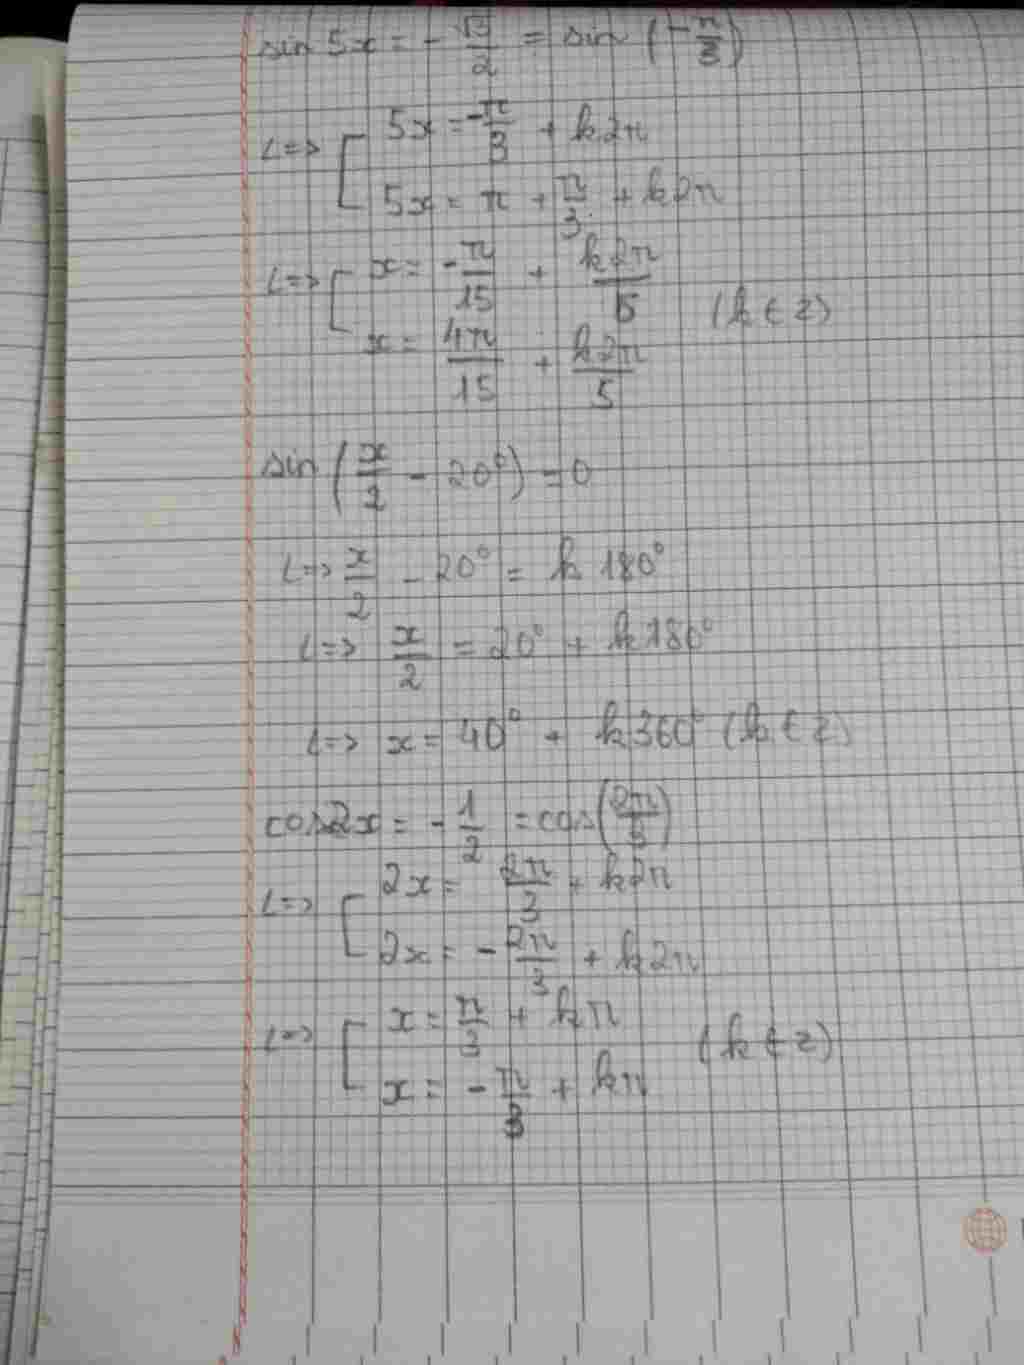 sin 5x = - √3/2 = sin (- π/3)
<=> [ 5x = -π/3 + k2π
5x = π + π/3 + k2π
<=> [ x = -π/15 + k2π/5
(k ∈ Z)
x = 4π/15 + k2π/5
sin (x/2 - 20°) = 0
<=> x/2 - 20° = k 180°
<=> x/2 = 20° + k180°
<=> x = 40° + k360° (k ∈ Z)
cos2x = - 1/2 = cos(2π/3)
<=> [ 2x = 2π/3 + k2π
2x = - 2π/3 + k2π
<=> [ x = π/3 + kπ
(k ∈ Z)
x = - π/3 + kπ